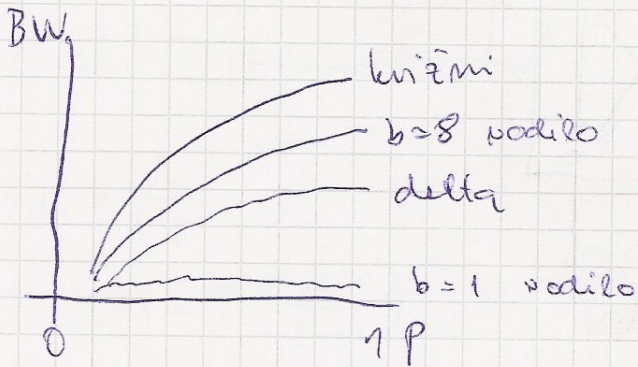 BW
križni
b=8 vodilo
delta
b=1 vodilo
0
1 P